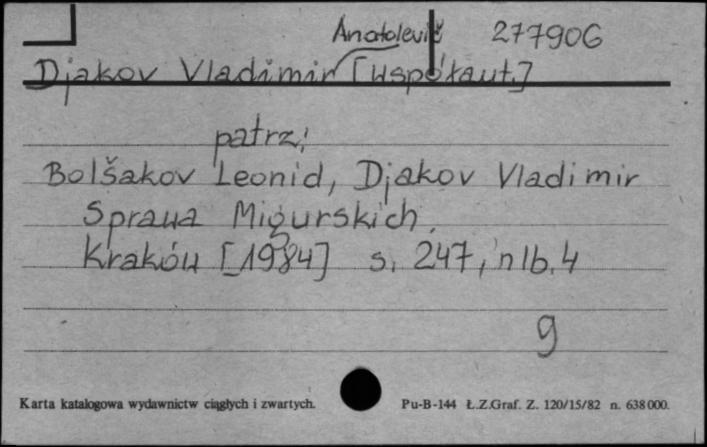 Anatolevič 277906
Djakov Vladimir [współaut.]
patrz:
Bolšakov Leonid, Djakov Vladimir
Sprawa Migurskich.
Kraków [1984] s. 247, nlb. 4
g
Karta katalogowa wydawnictw ciągłych i zwartych. Pu-B-144 Ł.Z.Graf. Z. 120/15/82 n. 638 000.